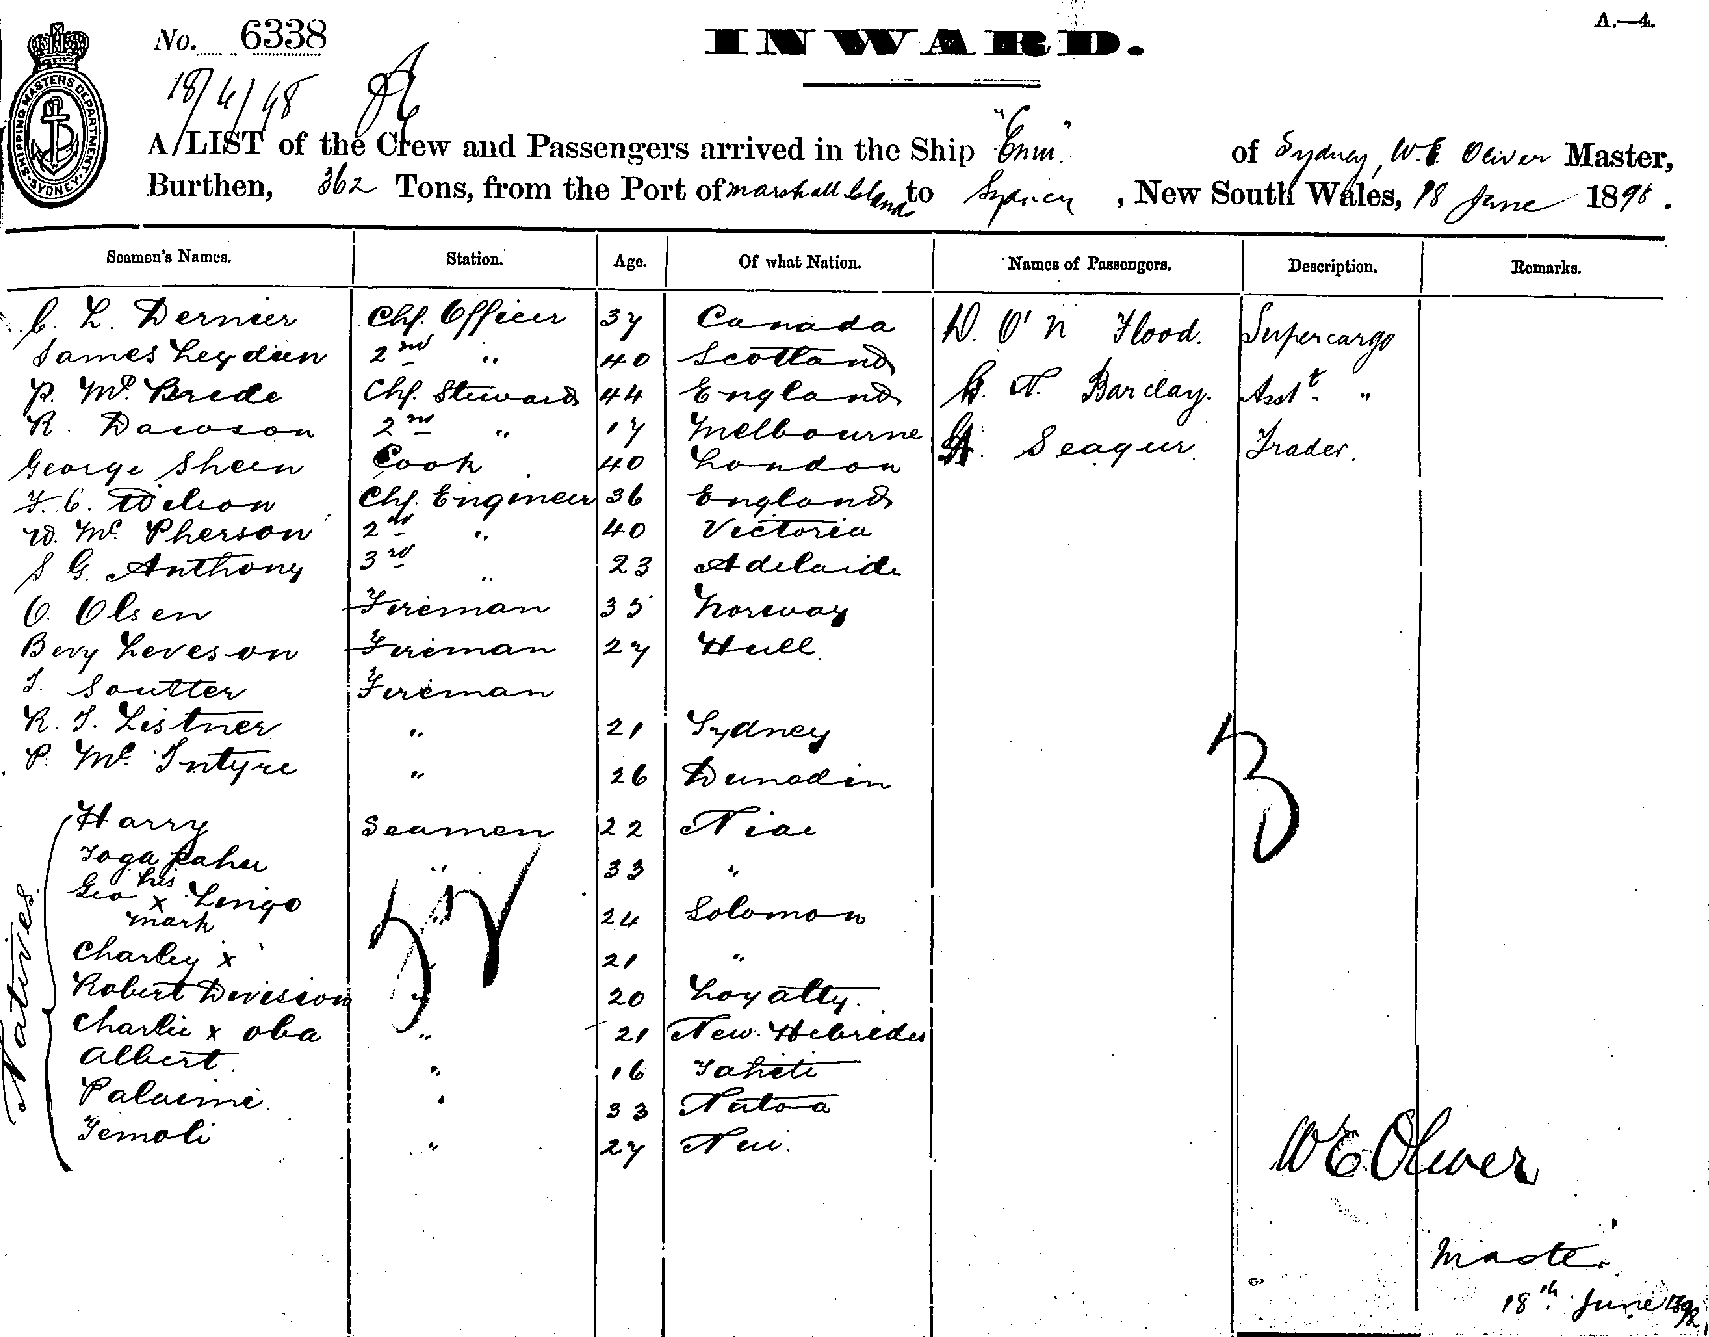 No. 6338
INWARD.
A.—4.
18/6/98
SHIPPING MASTERS DEPARTMENT, SYDNEY.
A LIST of the Crew and Passengers arrived in the Ship of Sydney, W. E. Oliver Master,
Burthen, 362 Tons, from the Port of Marshall Islands to Sydney, New South Wales, 18 June 1898.
Seamen's Names. Station. Age. Of what Nation. Names of Passengers. Description. Remarks.
C. L. Dernier Chf. Officer 37 Canada D. O'N Flood. Supercargo
James Leydien 2nd " 40 Scotland
P. Mc Brede Chf. Steward 44 England N. Barclay. Asst. "
R. Dawson 2nd " 17 Melbourne Seagur. Trader.
George Shein Cook 40 London
F. C. Wilson Chf. Engineer 36 England
W. Mc Pherson 2nd " 40 Victoria
S G. Anthony 3rd " 23 Adelaide
O. Olsen Fireman 35 Norway
Beny Leveson Fireman 27 Hull.
T. Soutter Fireman
R. T. Listner " 21 Sydney
P. Mc Intyre " 26 Dunadin
Natives.
Harry Seamen 22 Niae
Toga pahu " 33 "
Geo his x mark Lingo " 24 Solomon
Charley x " 21 "
Robert Division " 20 Loyalty.
Charlie x oba " 21 New Hebrides
Albert. " 16 Tahiti
Palaimi. " 33 Nutoa
Temoli " 27 Nui.
W E Oliver
Master.
18th June 1898